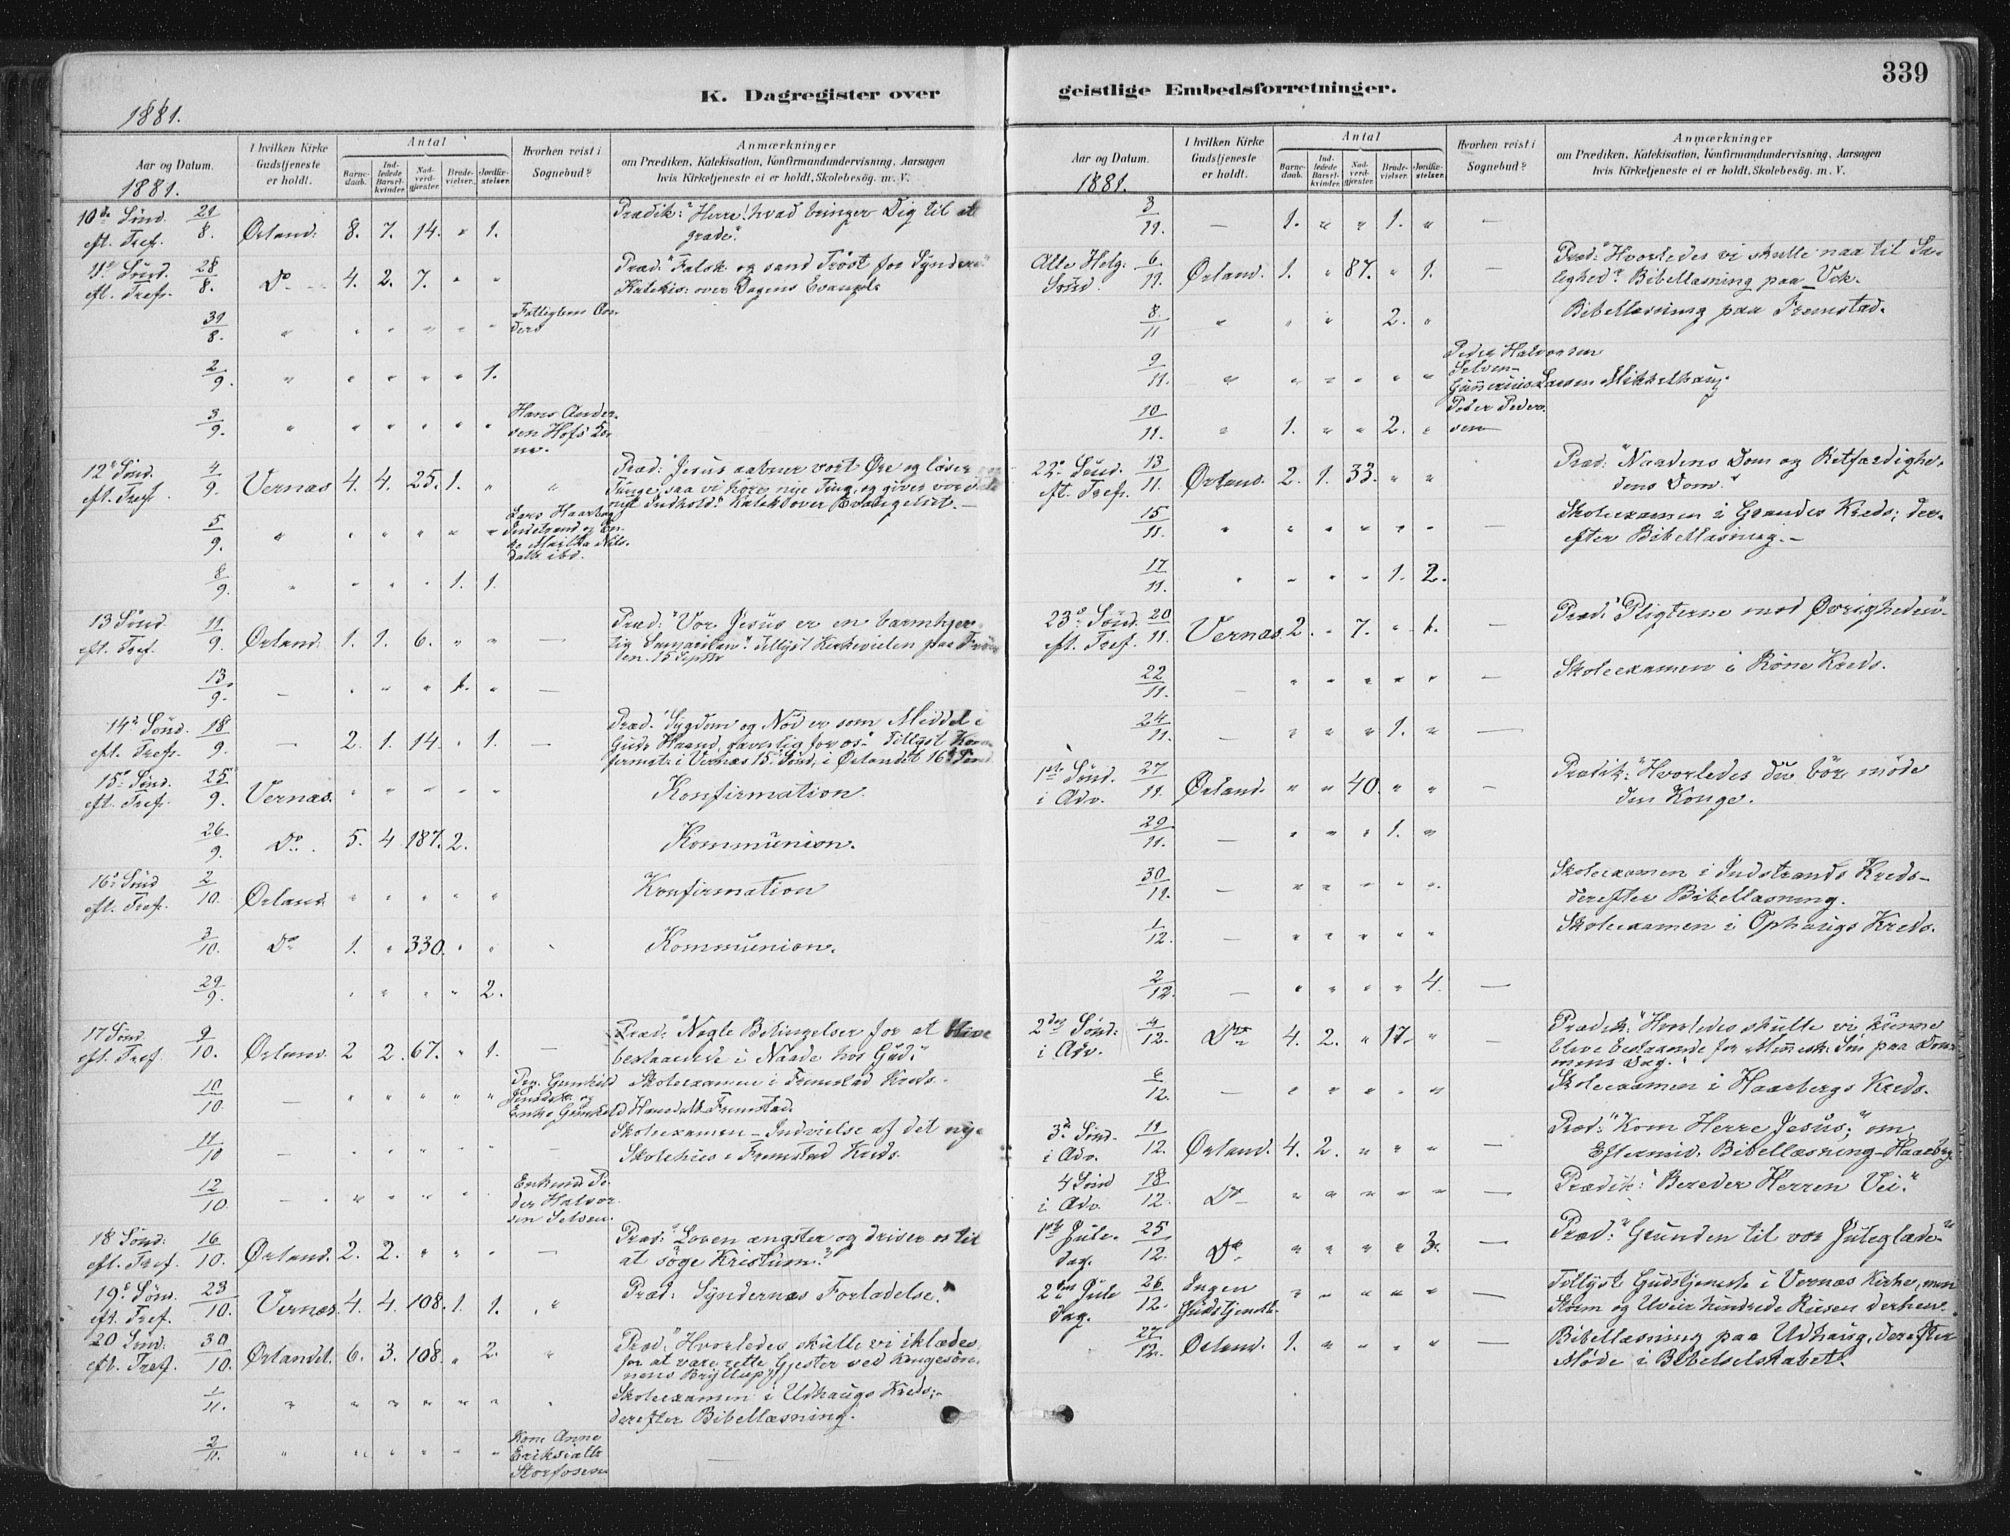 K. Dagregister over geistlige Embedsforretninger.
339
1881.
Aar og Datum.
I hvilken Kirke Gudstjeneste er holdt.
Antal
Barnedaab.
Indledede Barselkvinder.
Nadverdgjester.
Brudevielser.
Jordfæstelser.
Hvorhen reist i Sognebud?
Anmærkninger
om Prædiken, Katekisation, Konfirmandundervisning, Aarsagen
hvis Kirketjeneste ei er holdt, Skolebesøg. m. V.
1881.
10de Sönd. 21/8. Ørland. 8. 7. 14. " 1. Prædik: "Herre! hvad bringer Dig til at
eft. Tref. græde".
11te Sönd. 28/8. Do 4. 2. 7. " " Præd: "Falsk og sand Tröst for Syndere"
eft. Tref. Katekis: over Dagens Evangel.
31/8. " " " " " " Fattiglem An-
ders
2/9. " " " " " 1.
3/9. " " " " " " Hans Ander-
sen Hofs
12te Sönd. 4/9. Vernæs 4. 4. 25. 1. " " Præd: "Jesus aabner vort Øre og löser
eft. Tref. Tunge, saa vi hører nye Ting, og giver vor Tale
nyt Indhold". Katek. over Evangeliet.
5/9. " " " " " " Lars Haarberg
Indstrand og
8/9. " " " " 1. 1.
13 Sönd. 11/9. Ørland. 1. 1. 6. " " — Præd: "Vor Jesus er en barmhjer-
eft. Tref. tig Samaritan". Tillyst Kirkevielen paa
ten. 15 Septbr
13/9. — " " " 1. " —
14de Sönd. 18/9. — 2. 1. 14. " 1. — Præd. "Sygdom og Nöd er som Middel i
eft. Tref. Guds Haand, gavnlig for os". Tillyst Kon-
firmat. i Vernæs 15 Sönd, i Ørlandet 16de Sönd.
15de Sönd. 25/9. Vernæs. " " " " " Konfirmation.
eft. Tref.
26/9. Do. 5. 4 187. 2. Kommunion.
16de Sönd 2/10. Ørland. " " " " " Konfirmation
eft. Tref.
3/10. Do 1. " 330. " " " Kommunion.
29/9. " " " " 2.
17 Sönd 9/10. Ørland. 2 2. 67. " 1. — Præd: "Nogle Betingelser for at blive
eft. Tref. bestaaende i Naade hos Gud."
10/10. — " " " " " Skoleexamen i Fremstad Kreds.
Hansdatt. Fremstad.
11/10 — " " " " — Skoleexamen – Indvielse af det nye
Skolehus i Fremstad Kreds.
12/10. — " " " " " Enkemd Pe-
der Halvor-
sen Selven.
18 Sönd: 16/10. Ørland. 2. 2. " " " — Præd: "Loven ængster og driver os til
eft. Tref. at söge Kristum."
19de Sönd. 23/10. Vernæs. 4. 4. 108. 1. 1. " Præd: Syndernes Forladelse."
eft. Tref.
20 Sönd: 30/10. Ørlandet. 6. 3. 108. " 2. " Præd: "Hvorledes skulle vi iklædes
eft. Tref. for at være rette Gjester ved Kongesön-
nens Bryllup"
1/11. " " " " " " " Skoleexamen i Udhaugs Kreds;
derefter Bibellæsning.
2/11. " " " " " " Kone Anne
Eriksdatt.
Storfosen
Aar og Datum.
I hvilken Kirke Gudstjeneste er holdt.
Antal
Barnedaab.
Indledede Barselkvinder.
Nadverdgjester.
Brudevielser.
Jordfæstelser.
Hvorhen reist i Sognebud?
Anmærkninger
om Prædiken, Katekisation, Konfirmandundervisning, Aarsagen
hvis Kirketjeneste ei er holdt, Skolebesøg. m. V.
1881.
3/11. — 1. " " 1. " —
Alle Helg. 6/11. Ørland. 1. " 87. " 1. — Præd: "Hvorledes vi skulle naa til Sa-
Sönd. lighed". Bibellæsning paa
8/11 " " " 2. " Bibellæsning paa Fremstad.
9/11. " " " " " " Peder Halvorsen
Selven –
Gunnerius Larsen Mikkelhaug.
10/11. " 1. " " 2. " Peder Peder-
sen
22de Sönd. 13/11. Ørland. 2. 1. 33. " " Præd: "Naadens Dom og Retfærdighe-
eft. Tref. dens Dom."
15/11. " " " " " " — Skoleexamen i Grandes Kreds; der-
efter Bibellæsning.–
17/11. " " " " 1. 2. —
23de Sönd. 20/11. Vernæs. 2. " 7. " 1. — Præd. "Pligterne mod Øvrigheden".
eft. Tref.
22/11. — " " " " " — Skoleexamen i Röne Kreds.
24/11. — " " " 1. " —
1ste Sönd. 27/11. Ørland. " " 40. " " — Prædik: "Hvorledes du bör möde
i Adv. din Konge.
29/11. — " " " 1. "
30/11. — " " " " " Skoleexamen i Indstrands Kreds–
derefter Bibellæsning.
1/12. — " " " " " Skoleexamen i Ophaugs Kreds.
2/12. — " " " " 4. —
2den Sönd: 4/12. Do 4. 2. " 17. " — Prædik: "Hvorledes skulle vi kunne
i Adv. blive bestaaende for Mennesk. Sön paa Dom-
mens Dag."
6/12. — " " " " " — Skoleexamen i Haarbergs Kreds.
3de Sönd. 11/12. Ørland. 4. 2. " " " — Præd: "Kom Herre Jesus;" om
i Adv. Eftermid. Bibellæsning – Haarberg
4 Sönd 18/12. Do " " " " " — Prædik: "Bereder Herren Vei."
i Adv.
1ste Jule- 25/12. Do " " " " 3. — Præd: "Grunden til vor Juleglæde".
dag.
2den Jule 26/12. Ingen " " " " " — Tillyst Gudstjeneste i Vernæs Kirke, men
dag. Gudstjeneste. Storm og Uveir hindrede Reisen derhen.
27/12. Ørland. 1. " " " " — Bibellæsning paa Udhaug, derefter
Möde i Bibelselskabet.